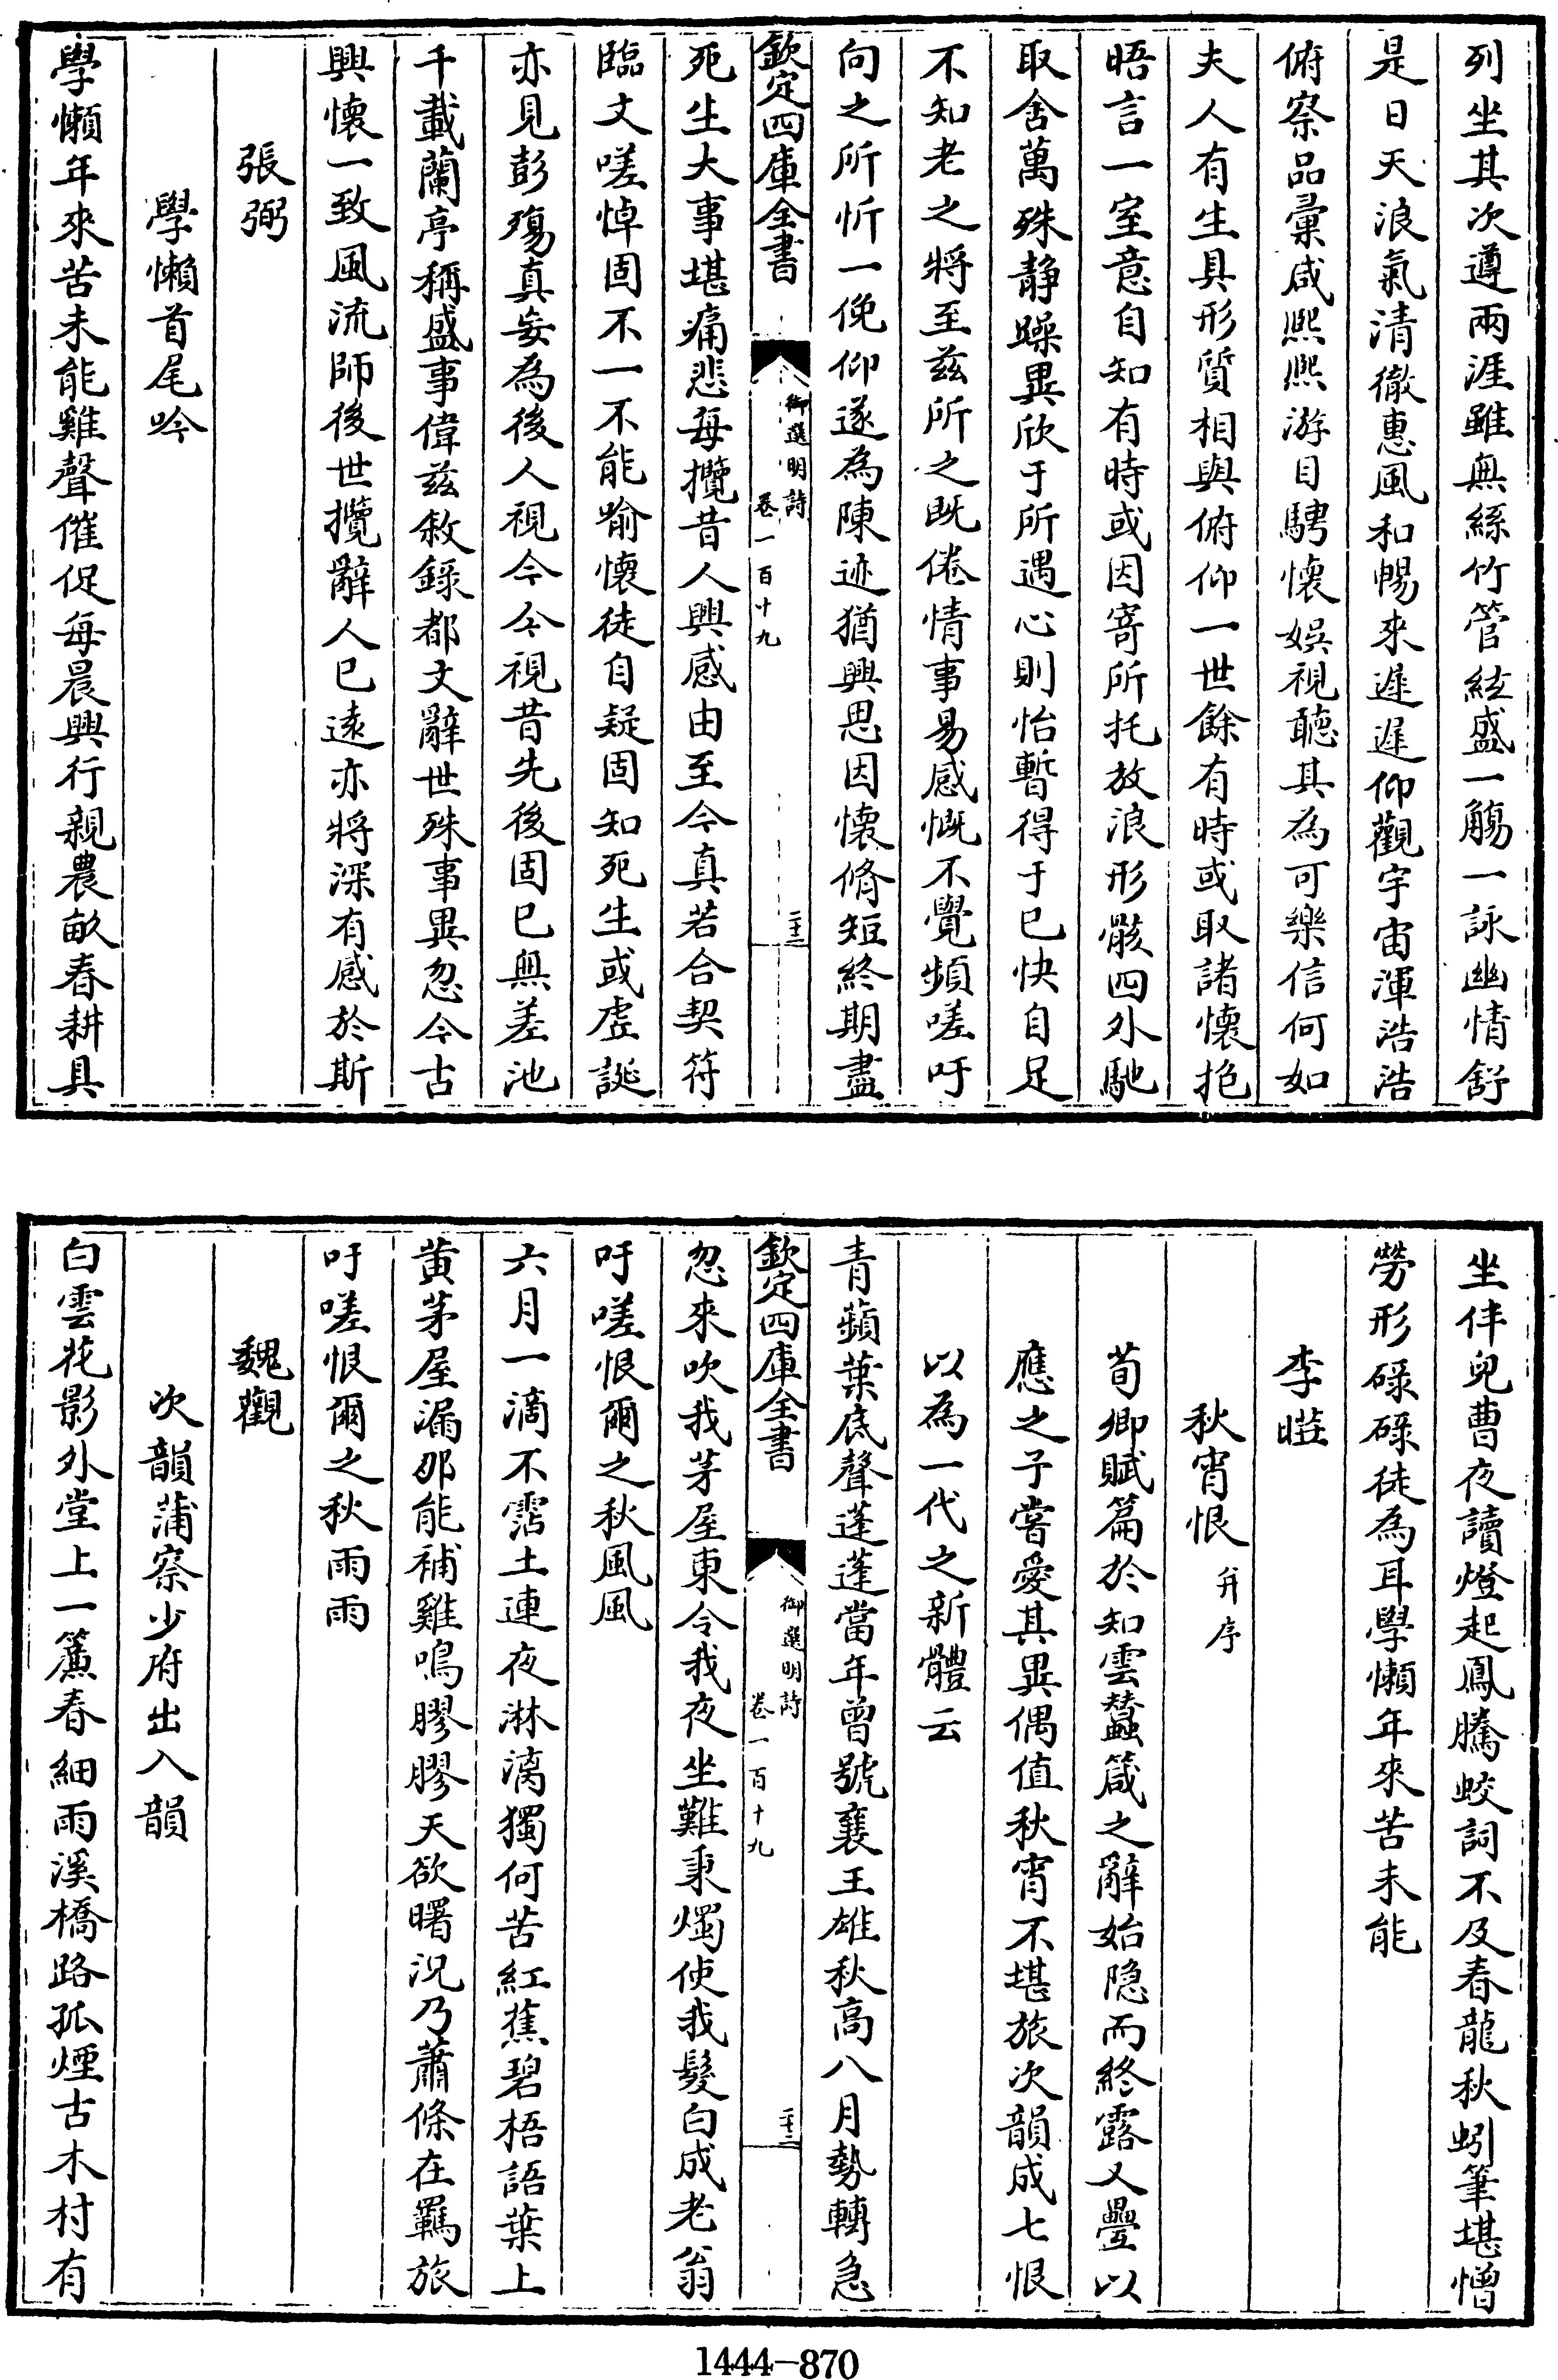 列坐其次遵兩涯雖無絲竹管絃盛一觴一詠幽情舒
是日天浪氣清徹惠風和暢來遲遲仰觀宇宙渾浩浩
俯察品彙咸熙熙游目騁懷娛視聽其為可樂信何如
夫人有生具形質相與俯仰一世餘有時或取諸懷抱
晤言一室意自知有時或因寄所托放浪形骸四外馳
取舍萬殊静躁異欣于所遇心則怡暫得于已快自足
不知老之將至兹所之既倦情事易感慨不覺頻嗟吁
向之所忻一俛仰遂為陳迹猶興思因懷脩短終期盡
欽定四庫全書
御選明詩
卷一百十九
二十三
死生大事堪痛悲每攬昔人興感由至今真若合契符
臨文嗟悼固不一不能喻懷徒自疑固知死生或虛誕
亦見彭殤真妄為後人視今今視昔先後固已無差池
千載蘭亭稱盛事偉兹敘錄都文辭世殊事異忽今古
興懷一致風流師後世攬辭人已遠亦將深有感於斯
張弼
學懶首尾吟
學懶年來苦未能雞聲催促每晨興行親農畝春耕具
坐伴兒曹夜讀燈起鳳騰蛟詞不及春龍秋蚓筆堪憎
勞形碌碌徒為耳學懶年來苦未能
李曀
秋宵恨并序
荀卿賦篇於知雲蠶箴之辭始隐而終露又疊以
應之予嘗愛其異偶值秋宵不堪旅次韻成七恨
以為一代之新體云
青蘋葉底聲蓬蓬當年曾號襄王雄秋高八月勢轉急
欽定四庫全書
御選明詩
卷一百十九
二十三
忽來吹我茅屋東令我夜坐難秉燭使我髮白成老翁
吁嗟恨爾之秋風風
六月一滴不霑土連夜淋漓獨何苦紅蕉碧梧語葉上
黄茅屋漏那能補雞鳴膠膠天欲曙況乃蕭條在羈旅
吁嗟恨爾之秋雨雨
魏觀
次韻蒲察少府出入韻
白雲花影外堂上一簾春細雨溪橋路孤煙古木村有
1444—870